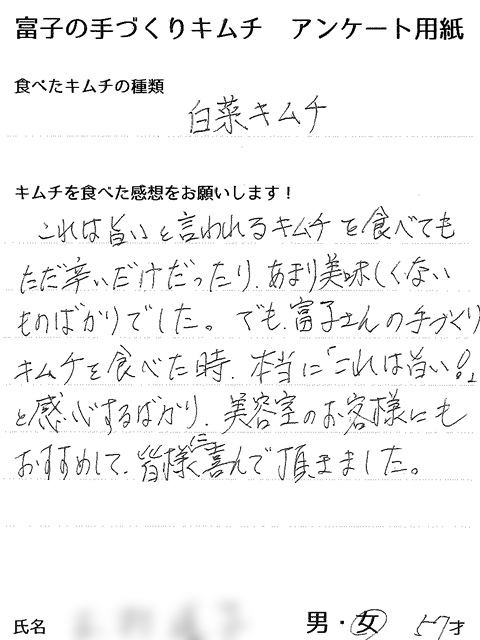 富子の手づくりキムチ アンケート用紙
食べたキムチの種類
白菜キムチ
キムチを食べた感想をお願いします！
これは旨いと言われるキムチを食べても
ただ辛いだけだったり、あまり美味しくない
ものばかりでした。でも、富子さんの手づくり
キムチを食べた時、本当に「これは旨い！」
と感心するばかり、美容室のお客様にも
おすすめして、皆様に喜んで頂きました。
氏名
男・女 57才